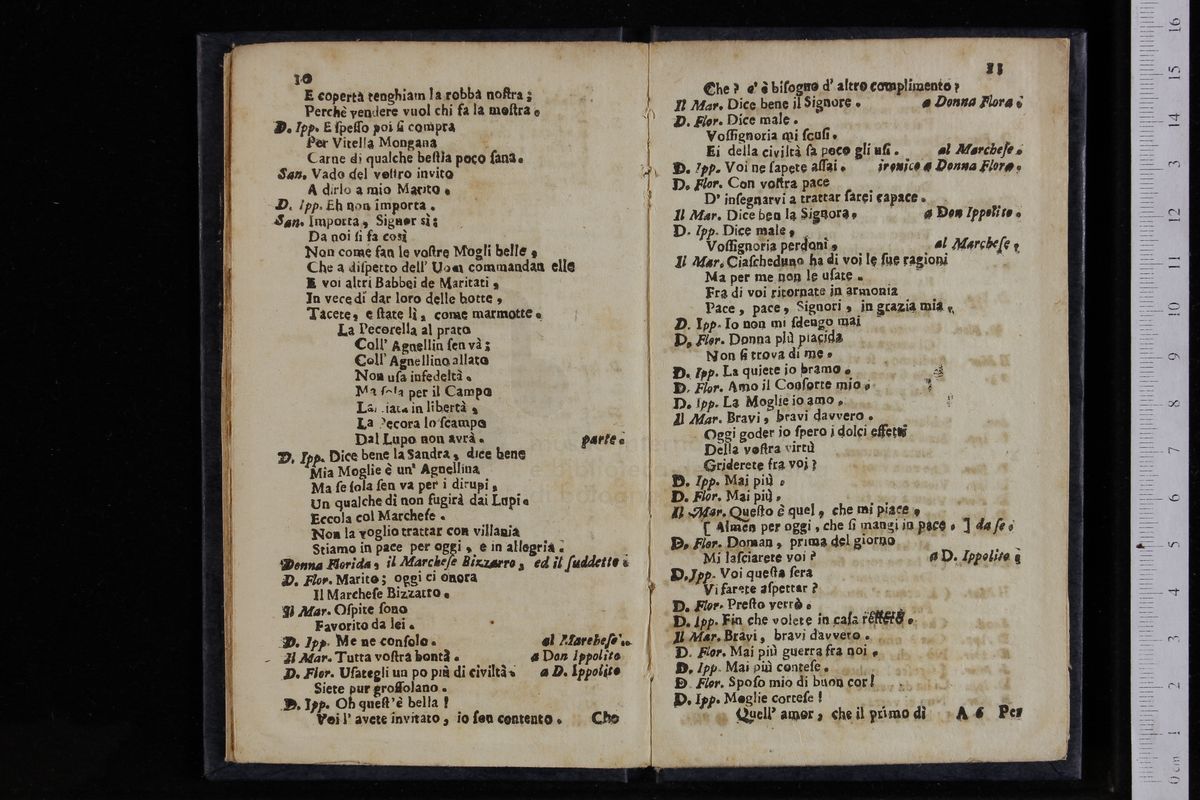 10
E coperta tenghiam la robba noſtra;
Perchè vendere vuol chi fa la moſtra.
D. Ipp. E ſpeſſo poi ſi compra
Per Vitella Mongana
Carne di qualche beſtia poco ſana.
San. Vado del voſtro invito
A dirlo a mio Marito.
D. Ipp. Eh non importa.
San. Importa, Signor sì;
Da noi ſi fa così
Non come fan le voſtre Mogli belle,
Che a diſpetto dell' Uom commandan elle
E voi altri Babbei de Maritati,
In vece di dar loro delle botte,
Tacete, e ſtate lì, come marmotte.
La Pecorella al prato
Coll' Agnellin ſen và;
Coll' Agnellino allato
Non uſa infedeltà.
Ma ſola per il Campo
in libertà,
La Pecora lo ſcampo
Dal Lupo non avrà. parte.
D. Ipp. Dice bene la Sandra, dice bene
Mia Moglie è un' Agnellina
Ma ſe ſola ſen va per i dirupi,
Un qualche dì non fugirà dai Lupi.
Eccola col Marcheſe.
Non la voglio trattar con villania
Stiamo in pace per oggi, e in allegria.
Donna Florida, il Marcheſe Bizzarro, ed il ſuddetto.
D. Flor. Marito; oggi ci onora
Il Marcheſe Bizzarro.
Il Mar. Oſpite ſono
Favorito da lei.
D. Ipp. Me ne conſolo. al Marcheſe.
Il Mar. Tutta voſtra bontà. a Don Ippolito
D. Flor. Uſategli un po più di civiltà. a D. Ippolito
Siete pur groſſolano.
D. Ipp. Oh queſt'è bella!
Voi l' avete invitato, io ſon contento. Che
11
Che? v' è biſogno d' altro complimento?
Il Mar. Dice bene il Signore. a Donna Flora.
D. Flor. Dice male.
Voſſignoria mi ſcuſi.
Ei della civiltà ſa poco gli uſi. al Marcheſe.
D. Ipp. Voi ne ſapete aſſai. ironico a Donna Flora.
D. Flor. Con voſtra pace
D' inſegnarvi a trattar ſarei capace.
Il Mar. Dice ben la Signora. a Don Ippolito.
D. Ipp. Dice male,
Voſſignoria perdoni, al Marcheſe,
Il Mar. Ciaſcheduno ha di voi le ſue ragioni
Ma per me non le uſate.
Fra di voi ritornate in armonia
Pace, pace, Signori, in grazia mia,
D. Ipp. Io non mi ſdengo mai
D. Flor. Donna più piacida
Non ſi trova di me.
D. Ipp. La quiete io bramo.
D. Flor. Amo il Conſorte mio.
D. Ipp. La Moglie io amo.
Il Mar. Bravi, bravi davvero.
Oggi goder io ſpero i dolci effetti
Della voſtra virtù
Griderete fra voi?
D. Ipp. Mai più.
D. Flor. Mai più.
Il Mar. Queſto è quel, che mi piace.
[ Almen per oggi, che ſi mangi in pace. ] da ſe.
D. Flor. Doman, prima del giorno
Mi laſciarete voi? a D. Ippolito.
D. Ipp. Voi queſta ſera
Vi farete aſpettar?
D. Flor. Preſto verrò.
D. Ipp. Fin che volete in caſa reſterò.
Il Mar. Bravi, bravi davvero.
D. Flor. Mai più guerra fra noi.
D. Ipp. Mai più conteſe.
D. Flor. Spoſo mio di buon cor!
D. Ipp. Moglie corteſe!
Quell' amor, che il primo dì A 6 Per